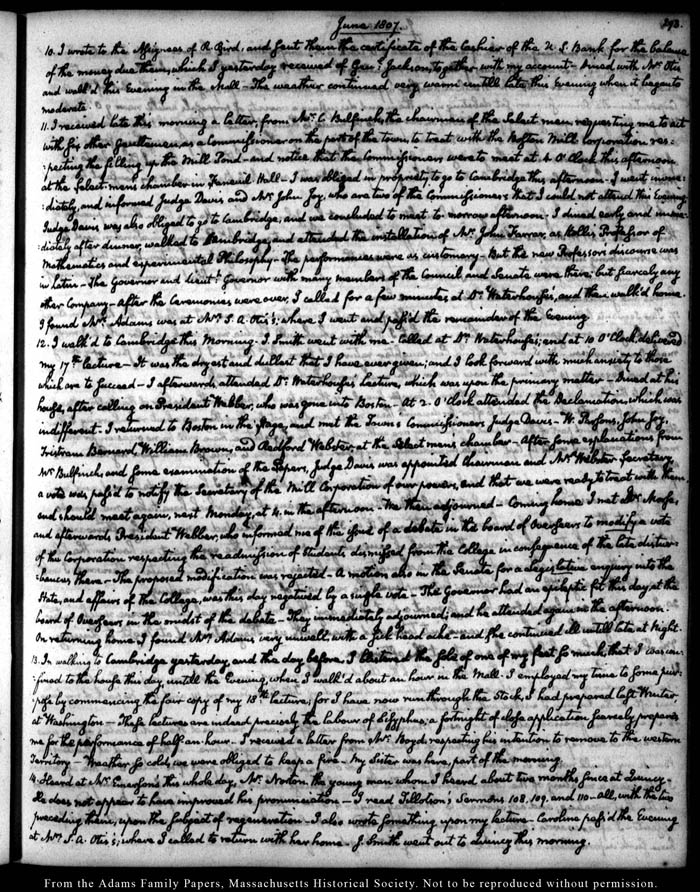 June 1807.
293.
10. I wrote to the Assignees of R. Bird, and sent them the certificate of the Cashier of the U. S. Bank for the balance
of the money due them, which I yesterday received of Genl. Jackson, together with my account — Dined with Mr. Otis
and walk'd this Evening in the Mall — The weather continued very warm untill late this Evening when it began to
moderate.
11. I received late this morning a letter from Mr. C. Bulfinch, the chairman of the Select men requesting me to act
with six other Gentlemen, as a Commissioner on the part of the town, to treat with the Boston Mill Corporation res=
:pecting the filling up the Mill Pond — and notice that the Commissioners were to meet at 4 O'Clock this afternoon
at the Select-mens chamber in Faneuil Hall — I was obliged in propriety to go to Cambridge this afternoon — I went imme=
:diately, and informed Judge Davis and Mr. John Joy, who are two of the Commissioners that I could not attend this Evening
Judge Davis was also obliged to go to Cambridge, and we concluded to meet to-morrow afternoon — I dined early and imme=
:diately after dinner, walked to Cambridge, and attended the installation of Mr. John Farrar, as Hollis Professor of
Mathematics and experimental Philosophy — The performances were as customary — But the new Professor's discourse was
in Latin — The Governor and Lieutt. Governor with many members of the Council and Senate were there; but scarcely any
other Company — After the Ceremonies were over, I called for a few minutes at Dr. Waterhouse's, and then walk'd home.
I found Mrs. Adams was at Mrs. S. A. Otis's; where I went and pass'd the remainder of the Evening
12. I walk'd to Cambridge this Morning — J. Smith went with me — Called at Dr. Waterhouse's; and at 10 O'Clock delivered
my 17th. lecture — It was the dryest and dullest that I have ever given; and I look forward with much anxiety to those
which are to succeed — I afterwards attended Dr. Waterhouse's Lecture, which was upon the primary matter — Dined at his
house, after calling on President Webber, who was gone into Boston — At 2. O'Clock attended the Declamation, which was
indifferent. I returned to Boston in the Stage, and met the Town's Commissioners Judge Davis — W. Parsons, John Joy,
Tristram Barnard, William Brown, and Redford Webster, at the Select mens chamber — After some explanations from
Mr. Bulfinch, and some examination of the Papers, Judge Davis was appointed Chairman and Mr. Webster Secretary
a vote was pass'd to notify the Secretary of the Mill Corporation of our powers, and that we were ready to treat with them
and should meet again, next Monday, at 4. in the afternoon. We then adjourned — Coming home I met Dr. Morse,
and afterwards President Webber, who informed me of the issue of a debate in the board of Overseers to modify a vote
of the Corporation respecting the readmission of Students dismissed from the College in consequence of the late distur=
:bances there — The proposed modification was rejected — A motion also in the Senate for a legislative enquiry into the
State, and affairs of the College, was this day negatived by a single vote — The Governor had an epileptic fit this day, at the
board of Overseers in the midst of the debate — They immediately adjourned; and he attended again in the afternoon.
On returning home I found Mrs. Adams very unwell with a sick head ache — and she continued ill untill late at Night.
13. In walking to Cambridge yesterday, and the day before, I blistered the sole of one of my feet so much, that I was con=
:fined to the house this day, untill the Evening, when I walk'd about an hour in the Mall. I employed my time to some pur=
:pose by commencing the fair copy of my 18th. lecture; for I have now run through the Stock, I had prepared last Winter
at Washington — These lectures are indeed precisely the labour of Sisyphus; a fortnight of close application scarcely prepares
me for the performance of half an hour — I received a letter from Mr. Boyd respecting his intention to remove to the western
Territory — Weather so cold, we were obliged to keep a fire — My Sister was here, part of the morning.
14. Heard at Mr. Emerson's this whole day, Mr. Norton, the young man whom I heard about two months since at Quincy —
He does not appear to have improved his pronunciation — I read Tillotson's Sermons 108, 109, and 110 — all, with the two
preceding them, upon the subject of regeneration — I also wrote something upon my lecture — Caroline pass'd the Evening
at Mrs. S. A. Otis's; where I called to return with her home — J. Smith went out to Quincy this morning.
From the Adams Family Papers, Massachusetts Historical Society. Not to be reproduced without permission.